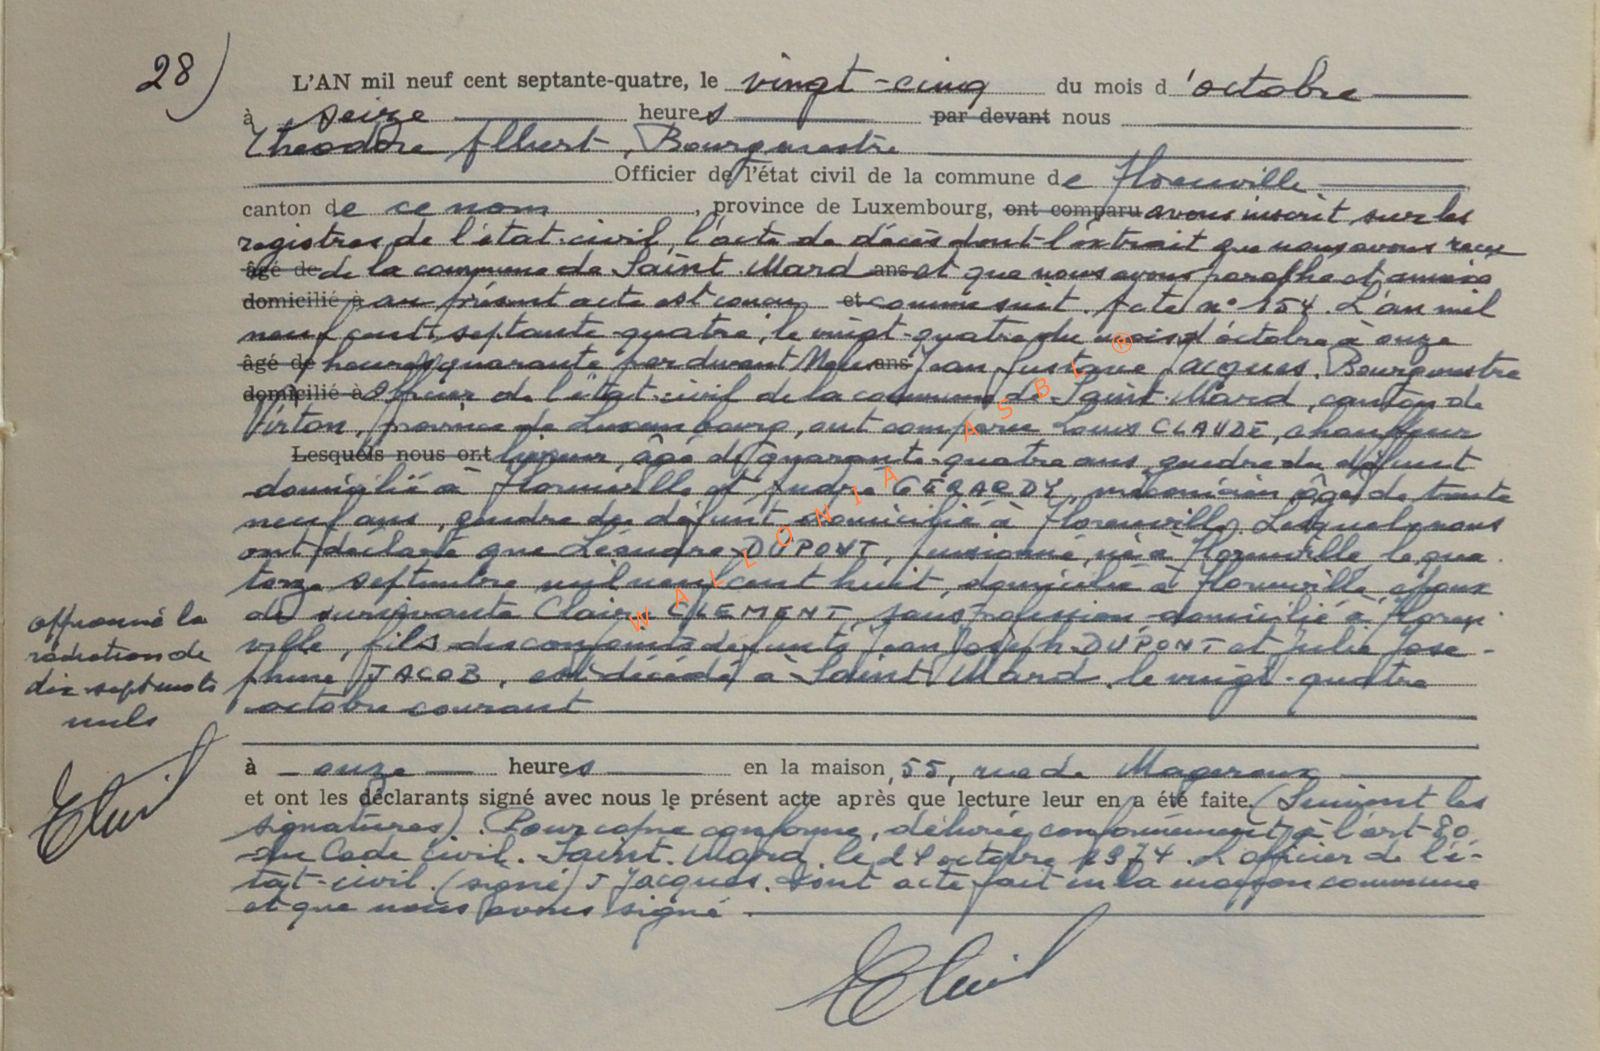 28)
L'AN mil neuf cent septante-quatre, le vingt-cinq du mois d'octobre
à seize heures par devant nous
Théodore Albert, Bourgmestre
Officier de l'état civil de la commune de Florenville
canton de ce nom, province de Luxembourg, ont comparu avons inscrit sur les
registres de l'état-civil, l'acte de décès dont l'extrait que nous avons reçu
âgé de de la commune de Saint-Mard ans et que nous avons paraphé et annexé
domicilié à au présent acte est conçu et comme suit. Acte n° 154. L'an mil
neuf cent septante-quatre, le vingt-quatre du mois d'octobre à onze
âgé de heures quarante par devant Nous ans Jean Gustave Jacques, Bourgmestre
domicilié à Officier de l'état-civil de la commune de Saint-Mard, canton de
Virton, province de Luxembourg, ont comparu Louis CLAUDE, chauffeur
Lesquels nous ont livreur, âgé de quarante-quatre ans, gendre du défunt
domicilié à Florenville et André GERARDY, mécanicien âgé de trente
neuf ans, gendre du défunt domicilié à Florenville. Lesquels nous
ont déclaré que Léandre DUPONT, pensionné, né à Florenville le qua-
torze septembre mil neuf cent huit, domicilié à Florenville, époux
de survivante Claire CLEMENT, sans profession domicilié à Floren-
ville, fils des conjoints défunts Jean Joseph DUPONT et Julie José-
phine JACOB, est décédé à Saint-Mard, le vingt-quatre
octobre courant
à onze heures en la maison, 55, rue de Mageroux
et ont les déclarants signé avec nous le présent acte après que lecture leur en a été faite. (Suivent les
signatures). Pour copie conforme, délivrée conformément à l'art 80
du Code civil. Saint-Mard, le 24 octobre 1974. L'officier de l'é-
tat-civil. (signé) J Jacques. Dont acte fait en la maison commune
et que nous avons signé
approuvé la
radiation de
dix-sept mots
nuls
WALLONIA ASBL ®